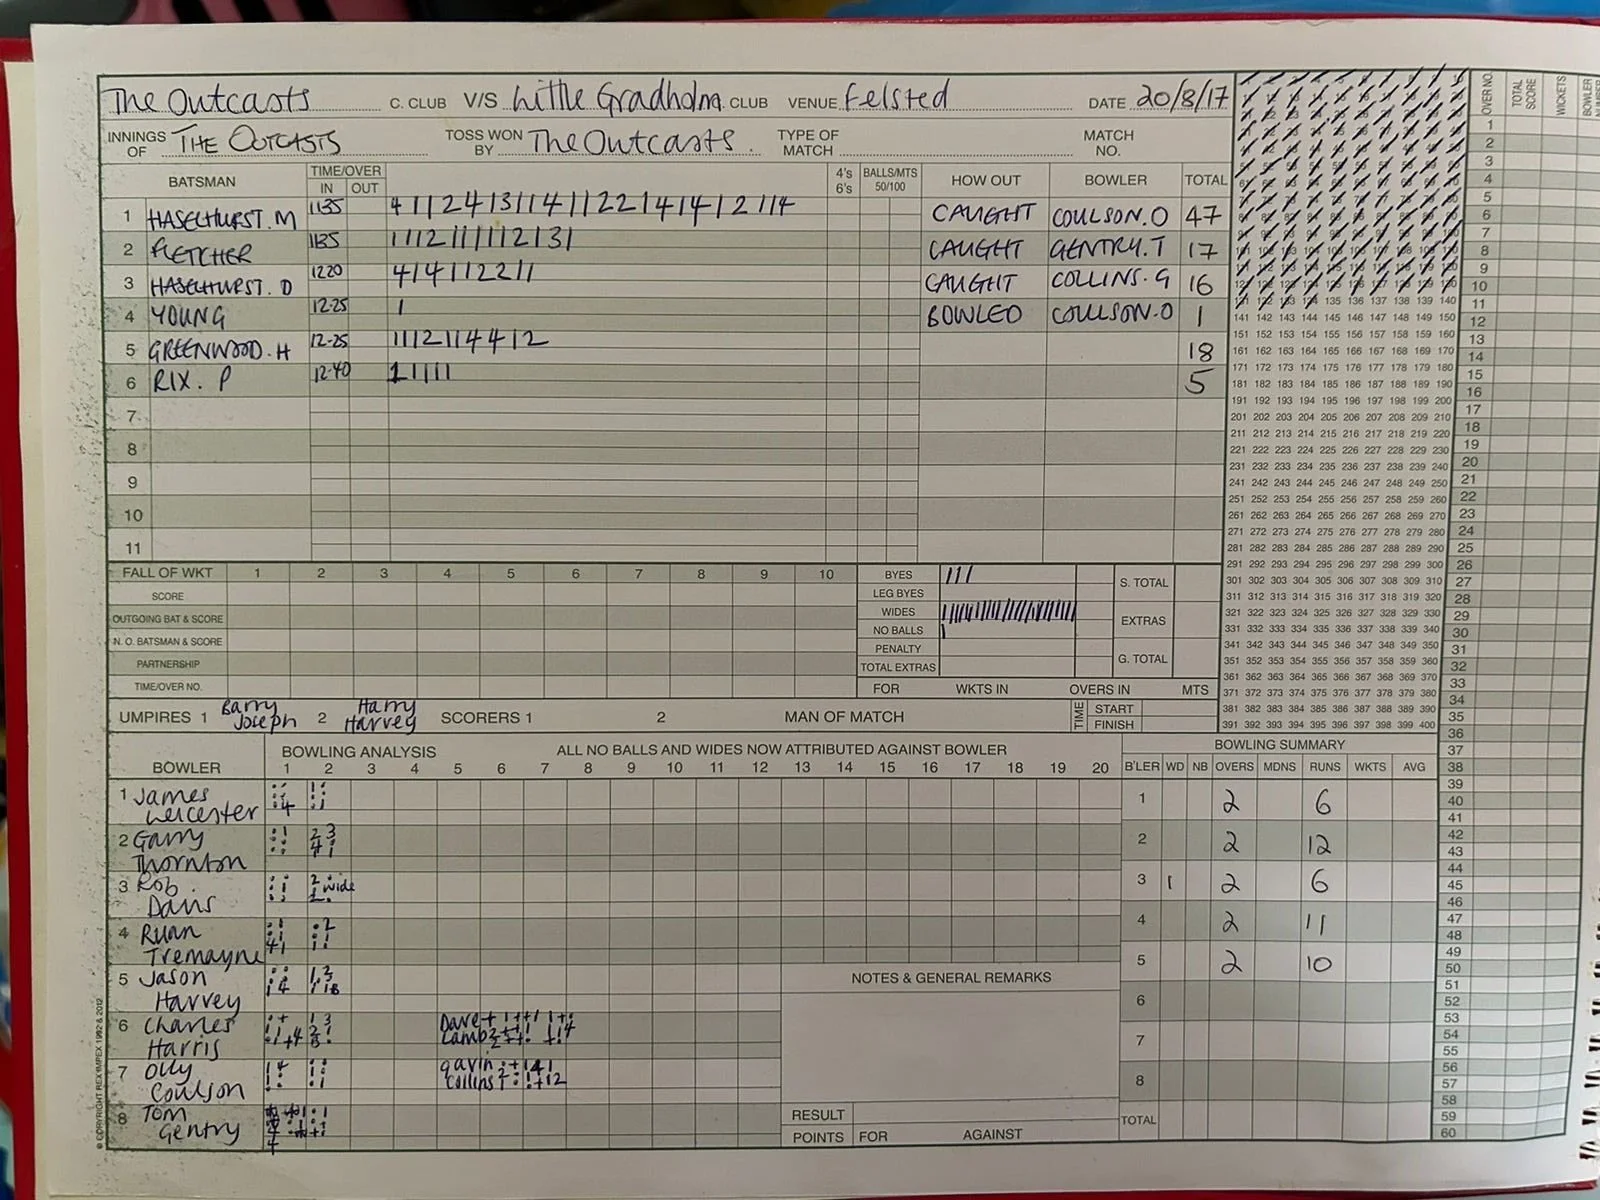 The Outcasts C. CLUB V/S Little Gradholm CLUB VENUE Felsted DATE 20/8/17
INNINGS OF THE OUTCASTS TOSS WON BY The Outcasts. TYPE OF MATCH MATCH NO.
BATSMAN TIME/OVER IN OUT 4's 6's BALLS/MTS 50/100 HOW OUT BOWLER TOTAL
1 HASELHURST. M 1135 CAUGHT COULSON. O 47
2 FLETCHER 1135 CAUGHT GENTRY. T 17
3 HASELHURST. D 1220 4 1 4 1 1 2 2 1 1 CAUGHT COLLINS. G 16
4 YOUNG 12-25 1 BOWLED COULSON. O 1
5 GREENWOOD. H 12-25 1 1 1 2 1 1 4 4 1 2 18
6 RIX. P 12-40 1 1 1 1 1 5
7
8
9
10
11
FALL OF WKT 1 2 3 4 5 6 7 8 9 10
SCORE
OUTGOING BAT & SCORE
N. O. BATSMAN & SCORE
PARTNERSHIP
TIME/OVER NO.
BYES III S. TOTAL
LEG BYES
WIDES EXTRAS
NO BALLS I
PENALTY G. TOTAL
TOTAL EXTRAS
FOR WKTS IN OVERS IN MTS
UMPIRES 1 Barry Joseph 2 Harry Harvey SCORERS 1 2 MAN OF MATCH TIME START FINISH
BOWLING ANALYSIS ALL NO BALLS AND WIDES NOW ATTRIBUTED AGAINST BOWLER
BOWLER 1 2 3 4 5 6 7 8 9 10 11 12 13 14 15 16 17 18 19 20
1 James Leicester
2 Garry Thornton
3 Rob Davis wide
4 Ruan Tremayne
5 Jason Harvey
6 Charles Harris Dave Lamb
7 Olly Coulson gavin collins
8 Tom Gentry
NOTES & GENERAL REMARKS
RESULT
POINTS FOR AGAINST
BOWLING SUMMARY
B'LER WD NB OVERS MDNS RUNS WKTS AVG
1 2 6
2 2 12
3 1 2 6
4 2 11
5 2 10
6
7
8
TOTAL
135 136 137 138 139 140
141 142 143 144 145 146 147 148 149 150
151 152 153 154 155 156 157 158 159 160
161 162 163 164 165 166 167 168 169 170
171 172 173 174 175 176 177 178 179 180
181 182 183 184 185 186 187 188 189 190
191 192 193 194 195 196 197 198 199 200
201 202 203 204 205 206 207 208 209 210
211 212 213 214 215 216 217 218 219 220
221 222 223 224 225 226 227 228 229 230
231 232 233 234 235 236 237 238 239 240
241 242 243 244 245 246 247 248 249 250
251 252 253 254 255 256 257 258 259 260
261 262 263 264 265 266 267 268 269 270
271 272 273 274 275 276 277 278 279 280
281 282 283 284 285 286 287 288 289 290
291 292 293 294 295 296 297 298 299 300
301 302 303 304 305 306 307 308 309 310
311 312 313 314 315 316 317 318 319 320
321 322 323 324 325 326 327 328 329 330
331 332 333 334 335 336 337 338 339 340
341 342 343 344 345 346 347 348 349 350
351 352 353 354 355 356 357 358 359 360
361 362 363 364 365 366 367 368 369 370
371 372 373 374 375 376 377 378 379 380
381 382 383 384 385 386 387 388 389 390
391 392 393 394 395 396 397 398 399 400
OVER NO. TOTAL SCORE WICKETS BOWLER
1
2
3
4
5
6
7
8
9
10
11
12
13
14
15
16
17
18
19
20
21
22
23
24
25
26
27
28
29
30
31
32
33
34
35
36
37
38
39
40
41
42
43
44
45
46
47
48
49
50
51
52
53
54
55
56
57
58
59
60
© COPYRIGHT REX IMPEX 1992 & 2012